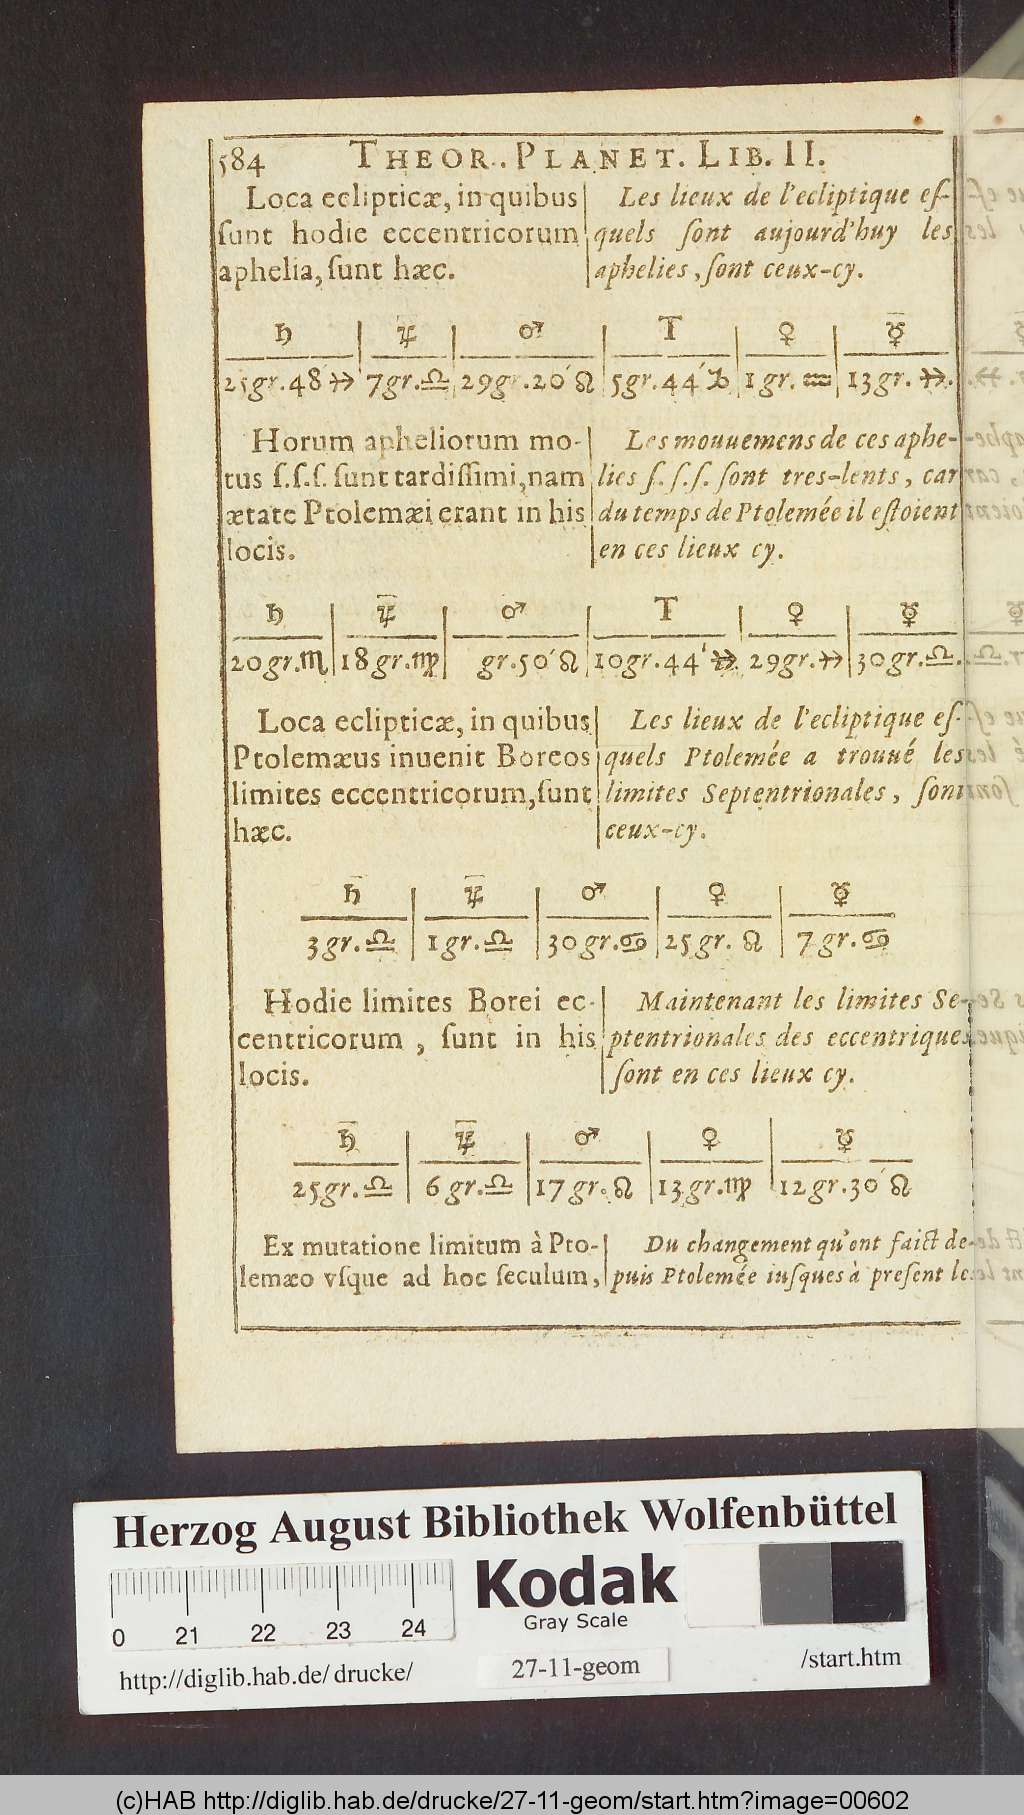 584 THEOR. PLANET. LIB. II.
Loca eclipticæ, in quibus
ſunt hodie eccentricorum
aphelia, ſunt hæc.
Les lieux de l'ecliptique eſ-
quels ſont aujourd'huy les
aphelies, ſont ceux-cy.
♄ ♃ ♂ T ♀ ☿
25gr.48′♐ 7gr.♎ 29gr.20′♌ 5gr.44′♑ 1gr.♒ 13gr.♐.
Horum apheliorum mo-
tus ſ.ſ.ſ. ſunt tardiſſimi, nam
ætate Ptolemæi erant in his
locis.
Les mouuemens de ces aphe-
lies ſ.ſ.ſ. ſont tres-lents, car
du temps de Ptolemée il eſtoient
en ces lieux cy.
♄ ♃ ♂ T ♀ ☿
20gr.♏ 18gr.♍ gr.50′♌ 10gr.44′♐ 29gr.♐ 30gr.♎.
Loca eclipticæ, in quibus
Ptolemæus inuenit Boreos
limites eccentricorum, ſunt
hæc.
Les lieux de l'ecliptique eſ-
quels Ptolemée a trouué les
limites Septentrionales, ſont
ceux-cy.
♄ ♃ ♂ ♀ ☿
3gr.♎ 1gr.♎ 30gr.♋ 25gr.♌ 7gr.♋
Hodie limites Borei ec-
centricorum, ſunt in his
locis.
Maintenant les limites Se-
ptentrionales des eccentriques
ſont en ces lieux cy.
♄ ♃ ♂ ♀ ☿
25gr.♎ 6gr.♎ 17gr.♌ 13gr.♍ 12gr.30′♌
Ex mutatione limitum à Pto-
lemæo vſque ad hoc ſeculum,
Du changement qu'ont faict de-
puis Ptolemée iuſques à preſent les
Herzog August Bibliothek Wolfenbüttel
Kodak
Gray Scale
0 21 22 23 24
http://diglib.hab.de/drucke/ 27-11-geom /start.htm
(c)HAB http://diglib.hab.de/drucke/27-11-geom/start.htm?image=00602